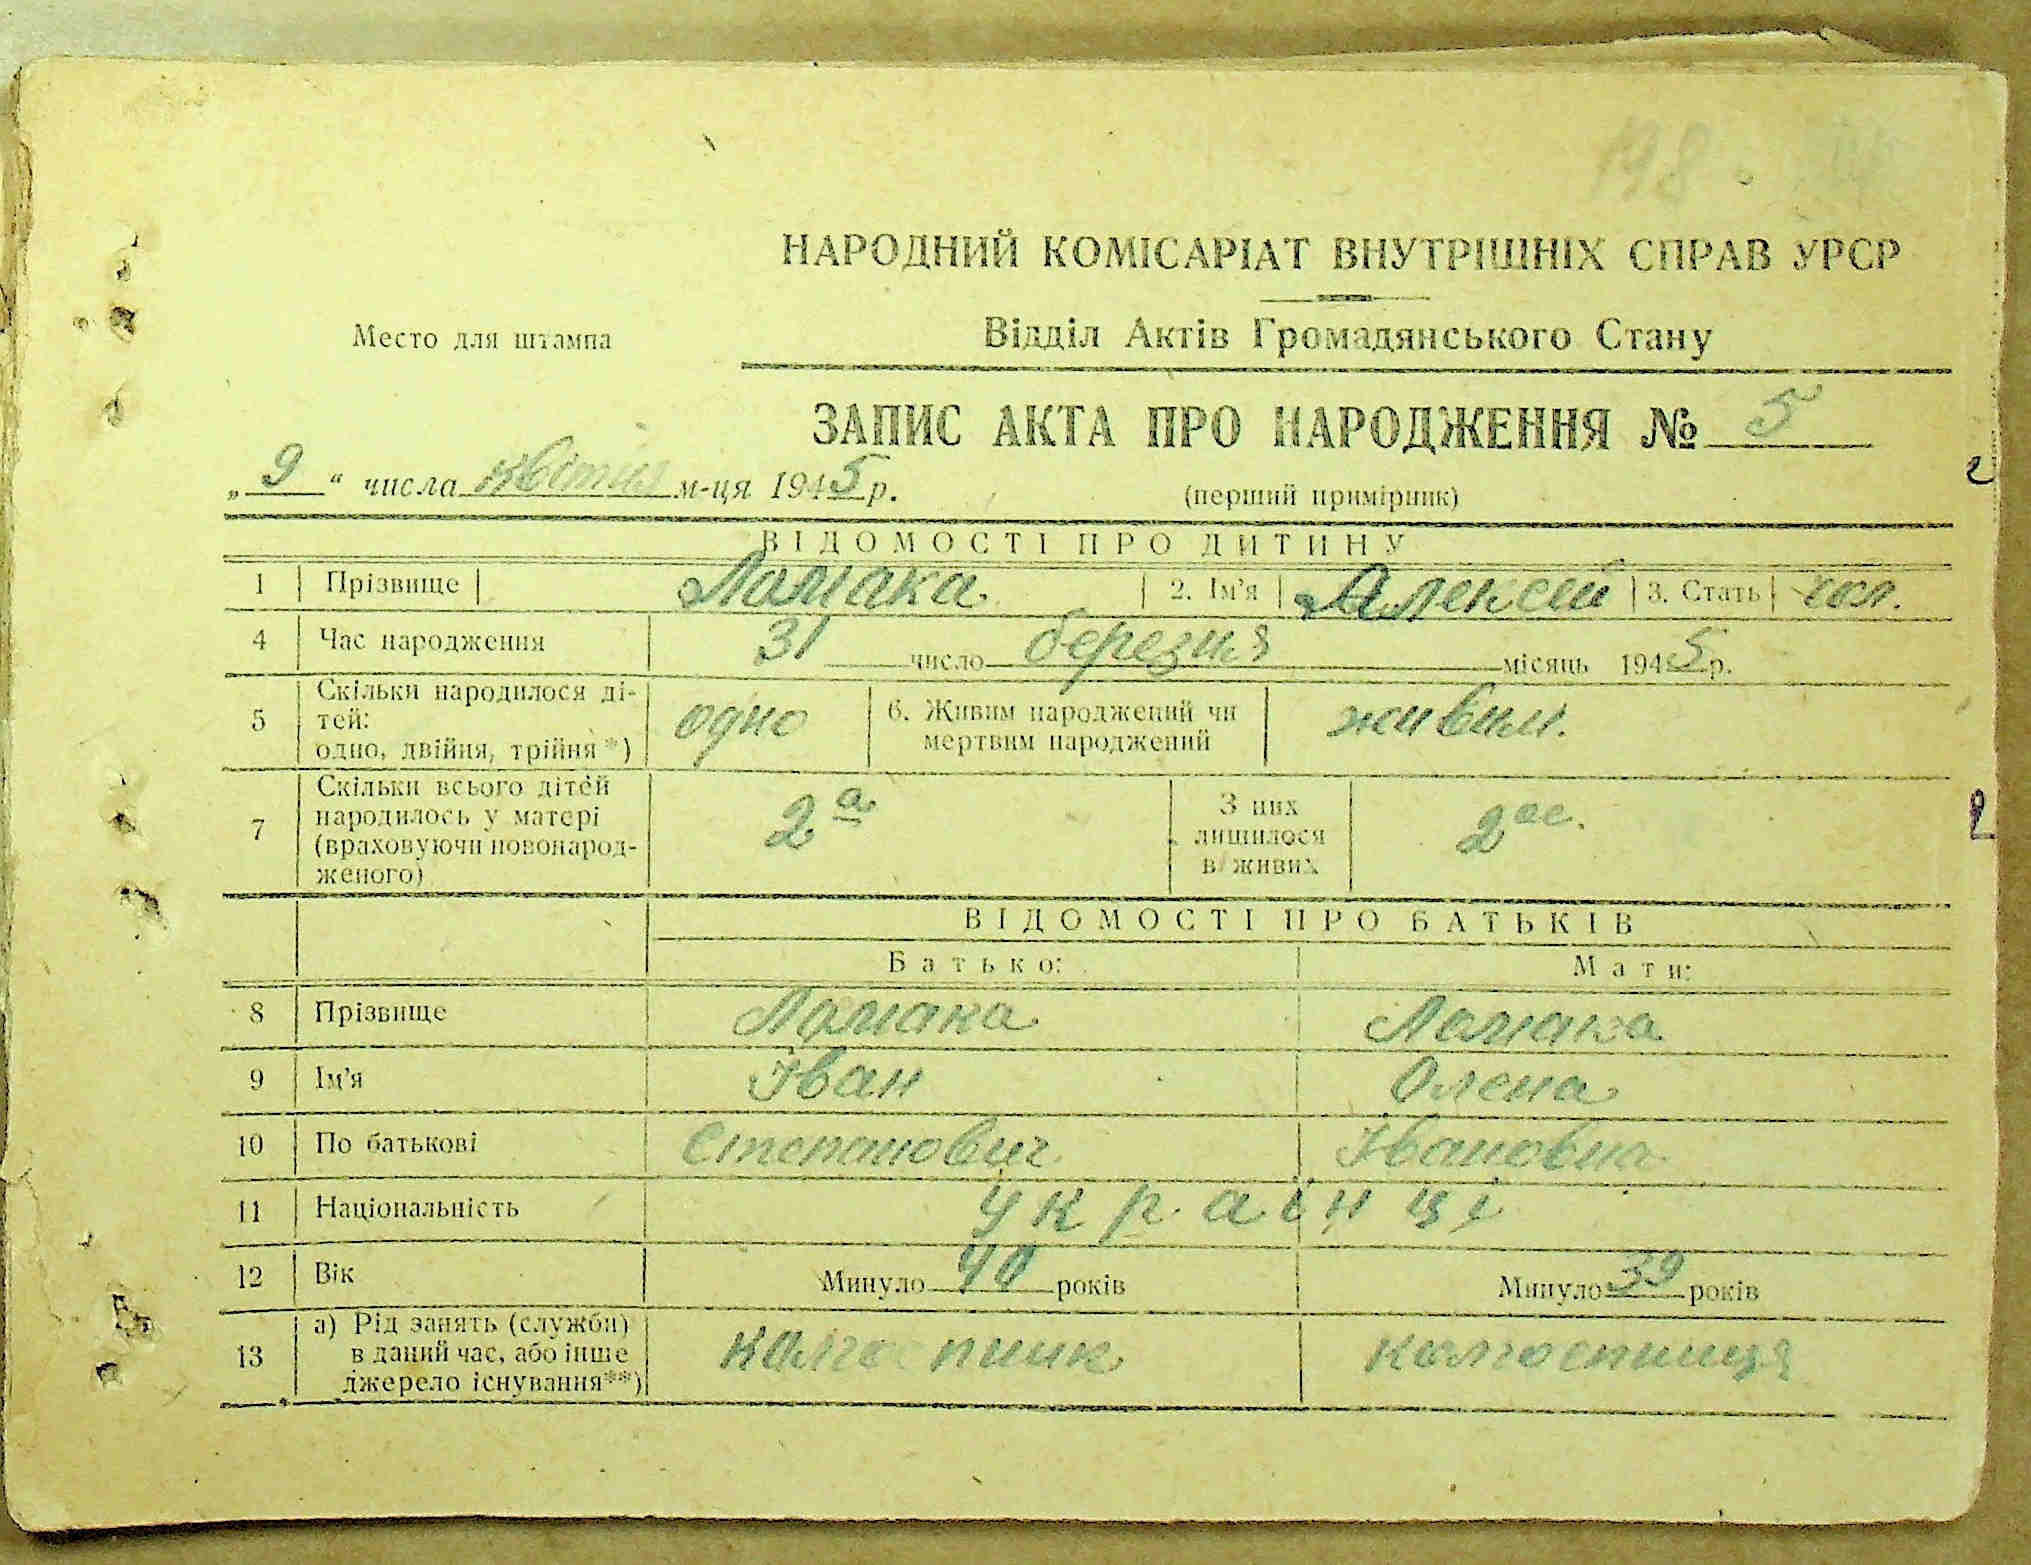 198
НАРОДНИЙ КОМІСАРІАТ ВНУТРІШНІХ СПРАВ УРСР
Место для штампа
Відділ Актів Громадянського Стану
ЗАПИС АКТА ПРО НАРОДЖЕННЯ № 5
„9“ числа квітня м-ця 1945 р.
(перший примірник)
ВІДОМОСТІ ПРО ДИТИНУ
1 Прізвище Ломака 2. Ім'я Алексей 3. Стать чол.
4 Час народження 31 число березня місяць 1945 р.
5 Скільки народилося ді-
тей:
одно, двійня, трійня*) одно 6. Живим народжений чи
мертвим народжений живим.
7 Скільки всього дітей
народилось у матері
(враховуючи новонарод-
женого) 2а З них
лишилося
в живих 2ое.
ВІДОМОСТІ ПРО БАТЬКІВ
Батько: Мати:
8 Прізвище Ломака Ломака
9 Ім'я Іван Олена
10 По батькові Степанович Івановна
11 Національність українці
12 Вік Минуло 40 років Минуло 39 років
13 а) Рід занять (служби)
в даний час, або інше
джерело існування**) колгоспник колгоспниця